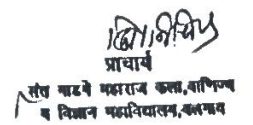 प्राचार्य
संत गाडगे महाराज कला,वाणिज्य
व विज्ञान महाविद्यालय,वलगाव